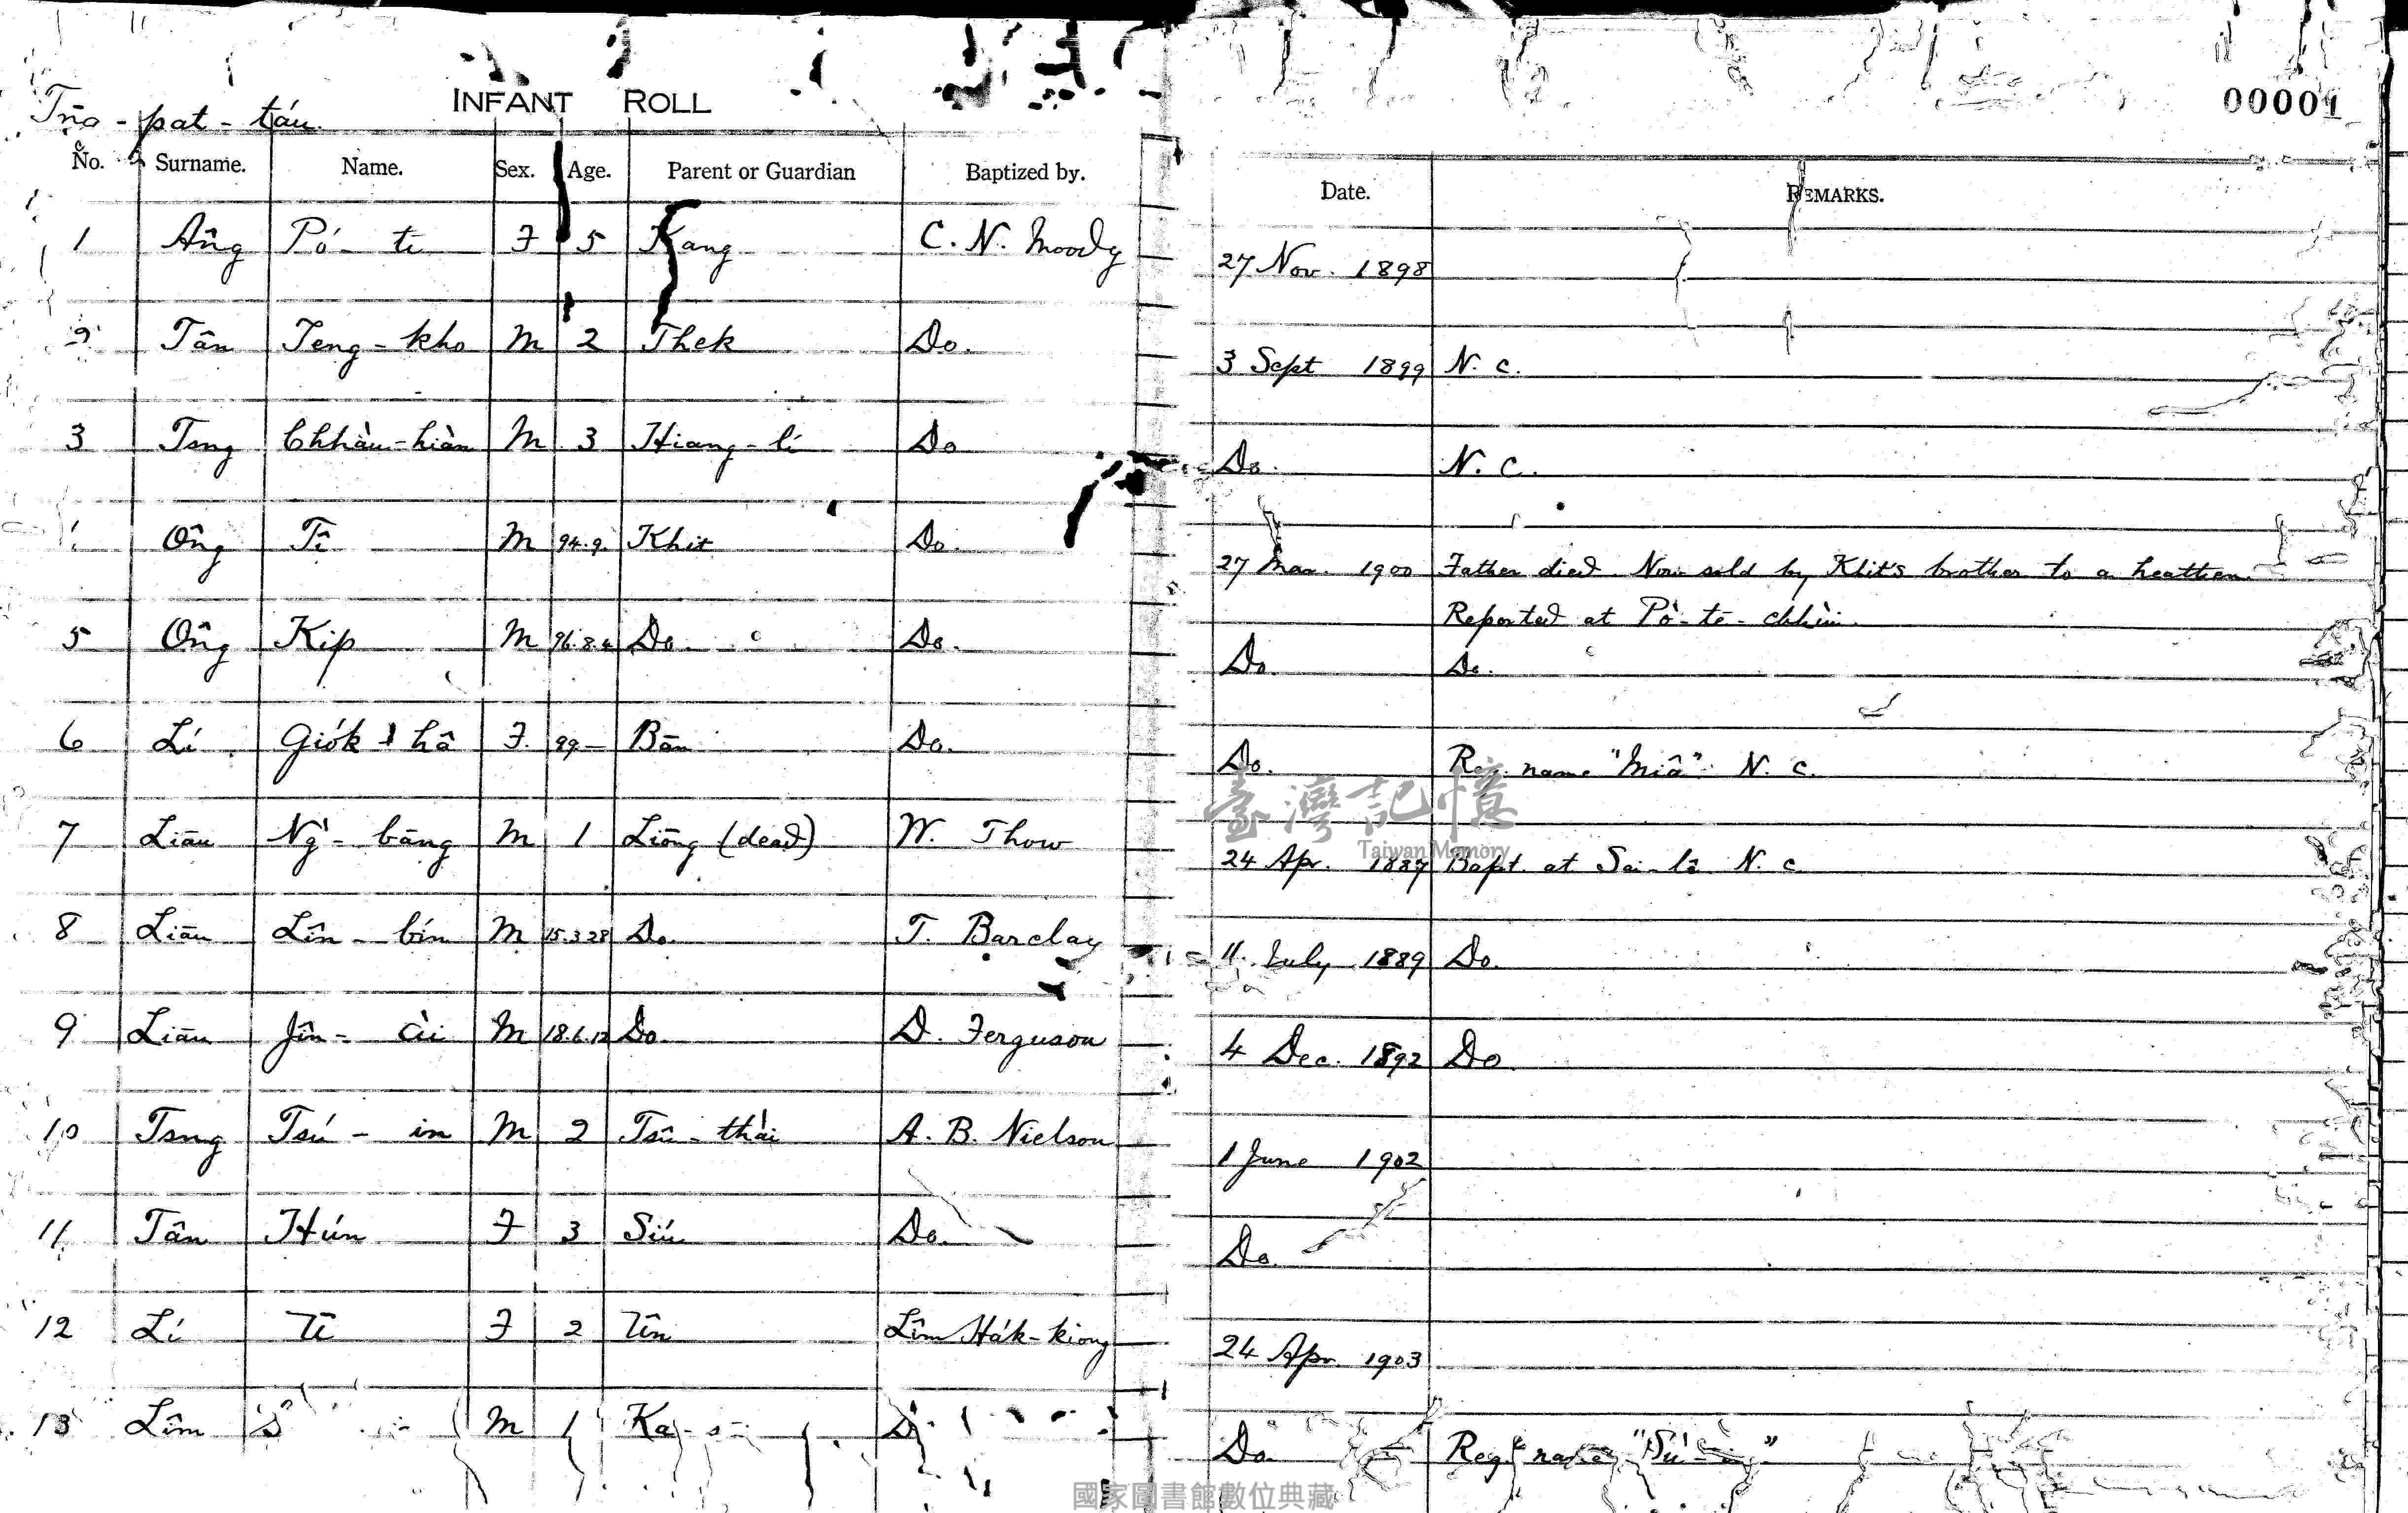 INFANT ROLL
00001
Tno-pat-táu
No. Surname. Name. Sex. Age. Parent or Guardian Baptized by. Date. REMARKS.
1 Âng Pó-te F 5 Kang C. N. Moody 27 Nov. 1898
2 Tân Teng-kho M 2 Thek Do. 3 Sept 1899 N. C.
3 Tsng Chhàu-hiàn M 3 Hiang-lí Do Do. N. C.
Ông Tî M 94.9. Khit Do. 27 Mar. 1900 Father died. Now sold by Khit's brother to a heathen.
Reported at Po-te-chhiu.
5 Ông Kip M 96.8.4 Do. Do. Do. Do.
6 Lí Giók hâ F. 99- Bān Do. Do. Reg. name "Miâ". N. C.
7 Liāu Ng-bāng M 1 Liōng (dead) W. Thow 24 Apr. 1887 Bapt. at Sai-lê N. C.
8 Liāu Lîn-bín M 15.3.28 Do. T. Barclay 11 July 1889 Do.
9 Liāu Jîn-ài M 18.6.12 Do. D. Ferguson 4 Dec. 1892 Do
10 Tsng Tsú-in M 2 Tsû-thài A. B. Nielson 1 June 1902
11 Tân Hún F 3 Siú Do. Do.
12 Lí Tî F 2 Tîn Lîm Hák-kiong 24 Apr 1903
13 Lîm M 1 Ka- Do. Reg. name
臺灣記憶
Taiwan Memory
國家圖書館數位典藏